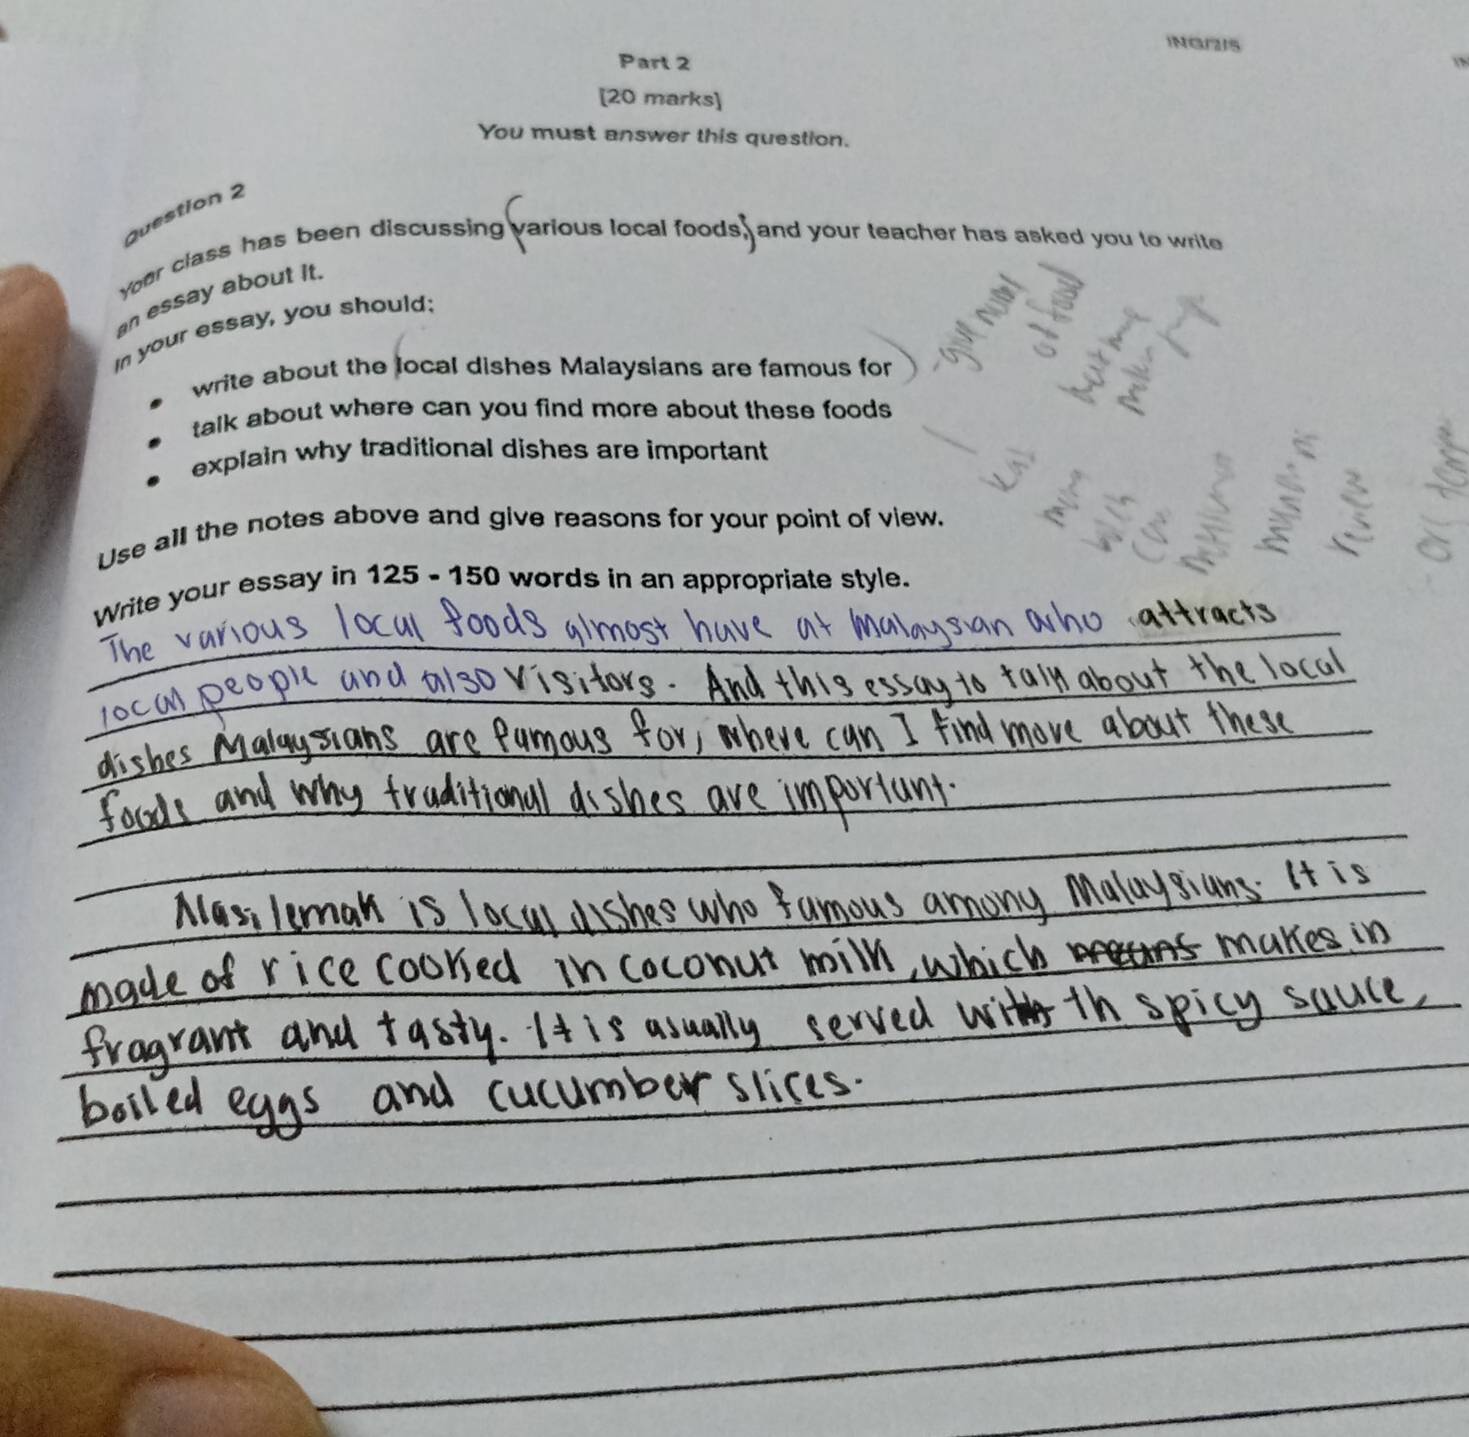 ING/2/5
Part 2
[20 marks]
You must answer this question.
Question 2
Your class has been discussing various local foods, and your teacher has asked you to write
an essay about it.
In your essay, you should:
• write about the local dishes Malaysians are famous for
• talk about where can you find more about these foods
• explain why traditional dishes are important
- give
of food
Use all the notes above and give reasons for your point of view.
review
Write your essay in 125 - 150 words in an appropriate style.
The various local foods almost have at Malaysian who attracts
local people and also visitors. And this essay to talk about the local
dishes Malaysians are famous for, where can I find more about these
foods and why traditional dishes are important.
Nasi lemak is local dishes who famous among Malaysians. It is
made of rice cooked in coconut milk, which means makes in
fragrant and tasty. It is asually served with th spicy sauce,
boiled eggs and cucumber slices.